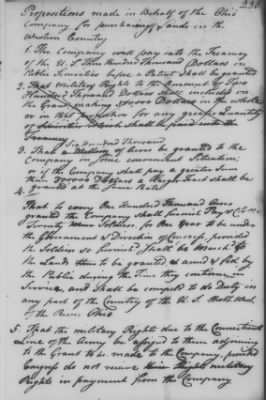 Propositions made in Behalf of the Ohio
Company for purchasing Lands in the
Western Country
1. The Company will pay into the Treasury
of the U.S. Five Hundred Thousand Dollars in
Public Securities before a Patent shall be granted
2. That Military Rights to the amount of
Hundred Thousand Dollars shall included in
the Grant making Dollars in the whole
or in that proportion for any greater quantity
Treasury
Six Hundred Thousand
3. That Acres be granted to the
Company in some convenient Situation;
or if the Company shall pay a greater Sum
than Dollars a larger Tract shall be
granted at the same Rate
4.
That to every One Hundred Thousand Acres
granted the Company shall furnish Pay &
Twenty Soldiers, for One Year to be under
the Government & Direction of Congress, furnish
The Soldiers so furnish'd shall be march'd to
the Lands to be granted & armed & fed by
the Public during the Time they continue in
Service, and shall be compelled to do Duty in
any part of the Country of the U.S. North West
of the River Ohio
5. That the military Rights due to the Connecticut
Line of the Army be assigned to them adjoining
to the Grant to be made to the Company, provided
Congress do not receive military
Rights in payment from the Company